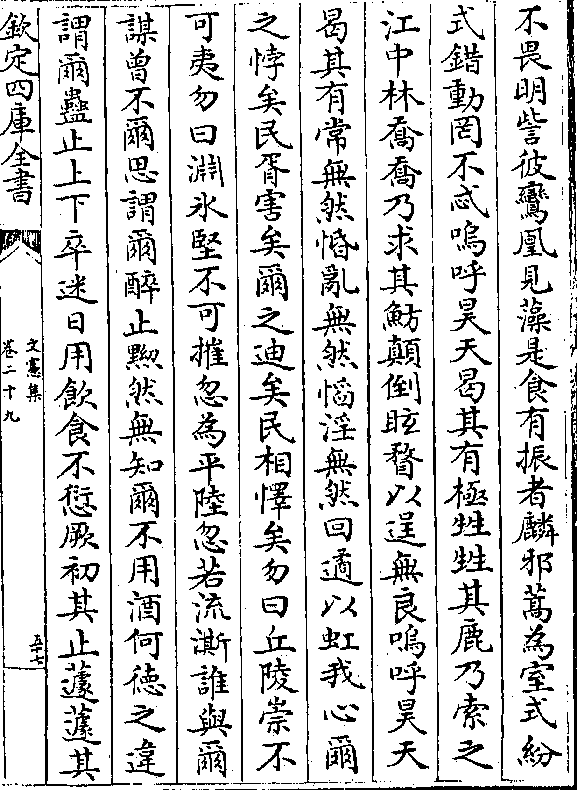 不畏明訾彼鸞凰見藻是食有振者麟邪蒿為室式紛
式錯動罔不忒嗚呼昊天曷其有極甡甡其鹿乃索之
江中林喬喬乃求其魴顛倒眩瞀以逞無良嗚呼昊天
曷其有常無然惛亂無然慆淫無然回遹以虹我心爾
之悖矣民胥害矣爾之迪矣民相懌矣勿曰丘陵崇不
可夷勿曰淵氷堅不可摧忽為平陸忽若流澌誰與爾
謀曽不爾思謂爾醉止黙然無知爾不用酒何德之違
謂爾蠱止上下卒迷日用飲食不愆厥初其止蘧蘧其
欽定四庫全書
文憲集
卷二十九
五十七